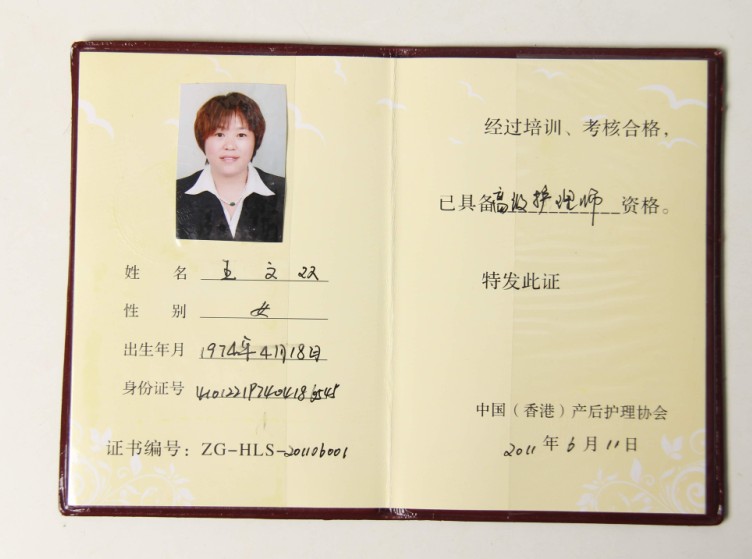 姓 名 王文双
性 别 女
出生年月 1974年4月18日
身份证号
证书编号：ZG-HLS-201106001
经过培训、考核合格，
已具备高级护理师资格。
特发此证
中国（香港）产后护理协会
2011年6月11日